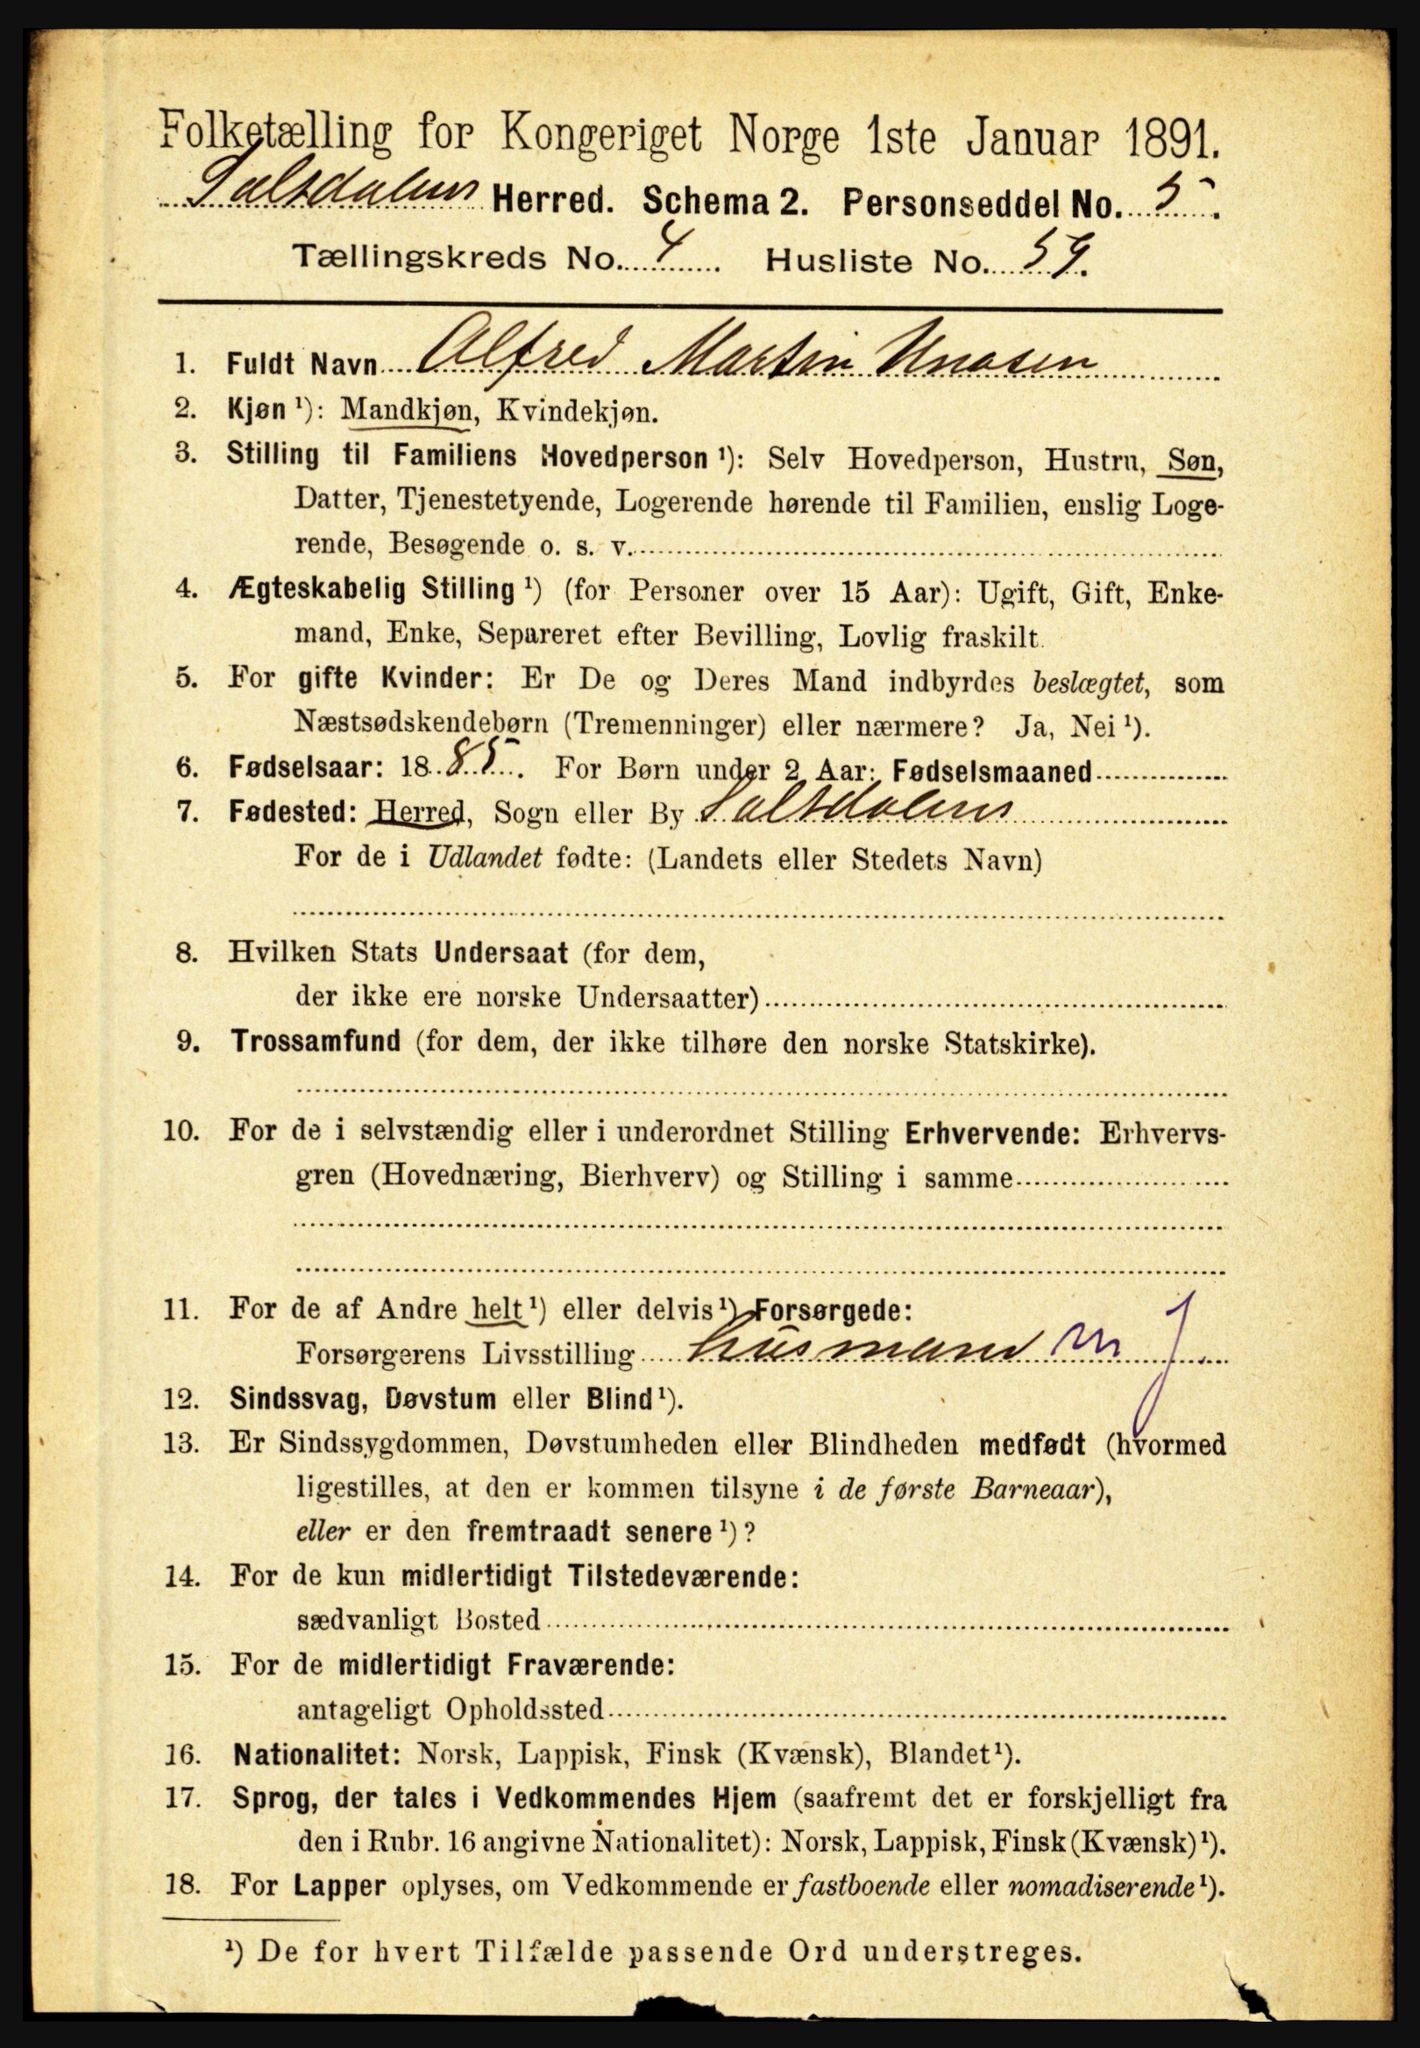 Folketælling for Kongeriget Norge 1ste Januar 1891.
Saltdalens Herred. Schema 2. Personseddel No. 5.
Tællingskreds No. 4. Husliste No. 59.
1. Fuldt Navn Alfred Martin Unasen
2. Kjøn ¹): Mandkjøn, Kvindekjøn.
3. Stilling til Familiens Hovedperson ¹): Selv Hovedperson, Hustru, Søn,
Datter, Tjenestetyende, Logerende hørende til Familien, enslig Loge-
rende, Besøgende o. s. v.
4. Ægteskabelig Stilling ¹) (for Personer over 15 Aar): Ugift, Gift, Enke-
mand, Enke, Separeret efter Bevilling, Lovlig fraskilt.
5. For gifte Kvinder: Er De og Deres Mand indbyrdes beslægtet, som
Næstsødskendebørn (Tremenninger) eller nærmere? Ja, Nei ¹).
6. Fødselsaar: 1885. For Børn under 2 Aar: Fødselsmaaned
7. Fødested: Herred, Sogn eller By Saltdalens
For de i Udlandet fødte: (Landets eller Stedets Navn)
8. Hvilken Stats Undersaat (for dem,
der ikke ere norske Undersaatter)
9. Trossamfund (for dem, der ikke tilhøre den norske Statskirke).
10. For de i selvstændig eller i underordnet Stilling Erhvervende: Erhvervs-
gren (Hovednæring, Bierhverv) og Stilling i samme
11. For de af Andre helt ¹) eller delvis ¹) Forsørgede:
Forsørgerens Livsstilling husmand m J.
12. Sindssvag, Døvstum eller Blind ¹).
13. Er Sindssygdommen, Døvstumheden eller Blindheden medfødt (hvormed
ligestilles, at den er kommen tilsyne i de første Barneaar),
eller er den fremtraadt senere ¹)?
14. For de kun midlertidigt Tilstedeværende:
sædvanligt Bosted
15. For de midlertidigt Fraværende:
antageligt Opholdssted
16. Nationalitet: Norsk, Lappisk, Finsk (Kvænsk), Blandet ¹).
17. Sprog, der tales i Vedkommendes Hjem (saafremt det er forskjelligt fra
den i Rubr. 16 angivne Nationalitet): Norsk, Lappisk, Finsk (Kvænsk) ¹).
18. For Lapper oplyses, om Vedkommende er fastboende eller nomadiserende ¹).
¹) De for hvert Tilfælde passende Ord understreges.